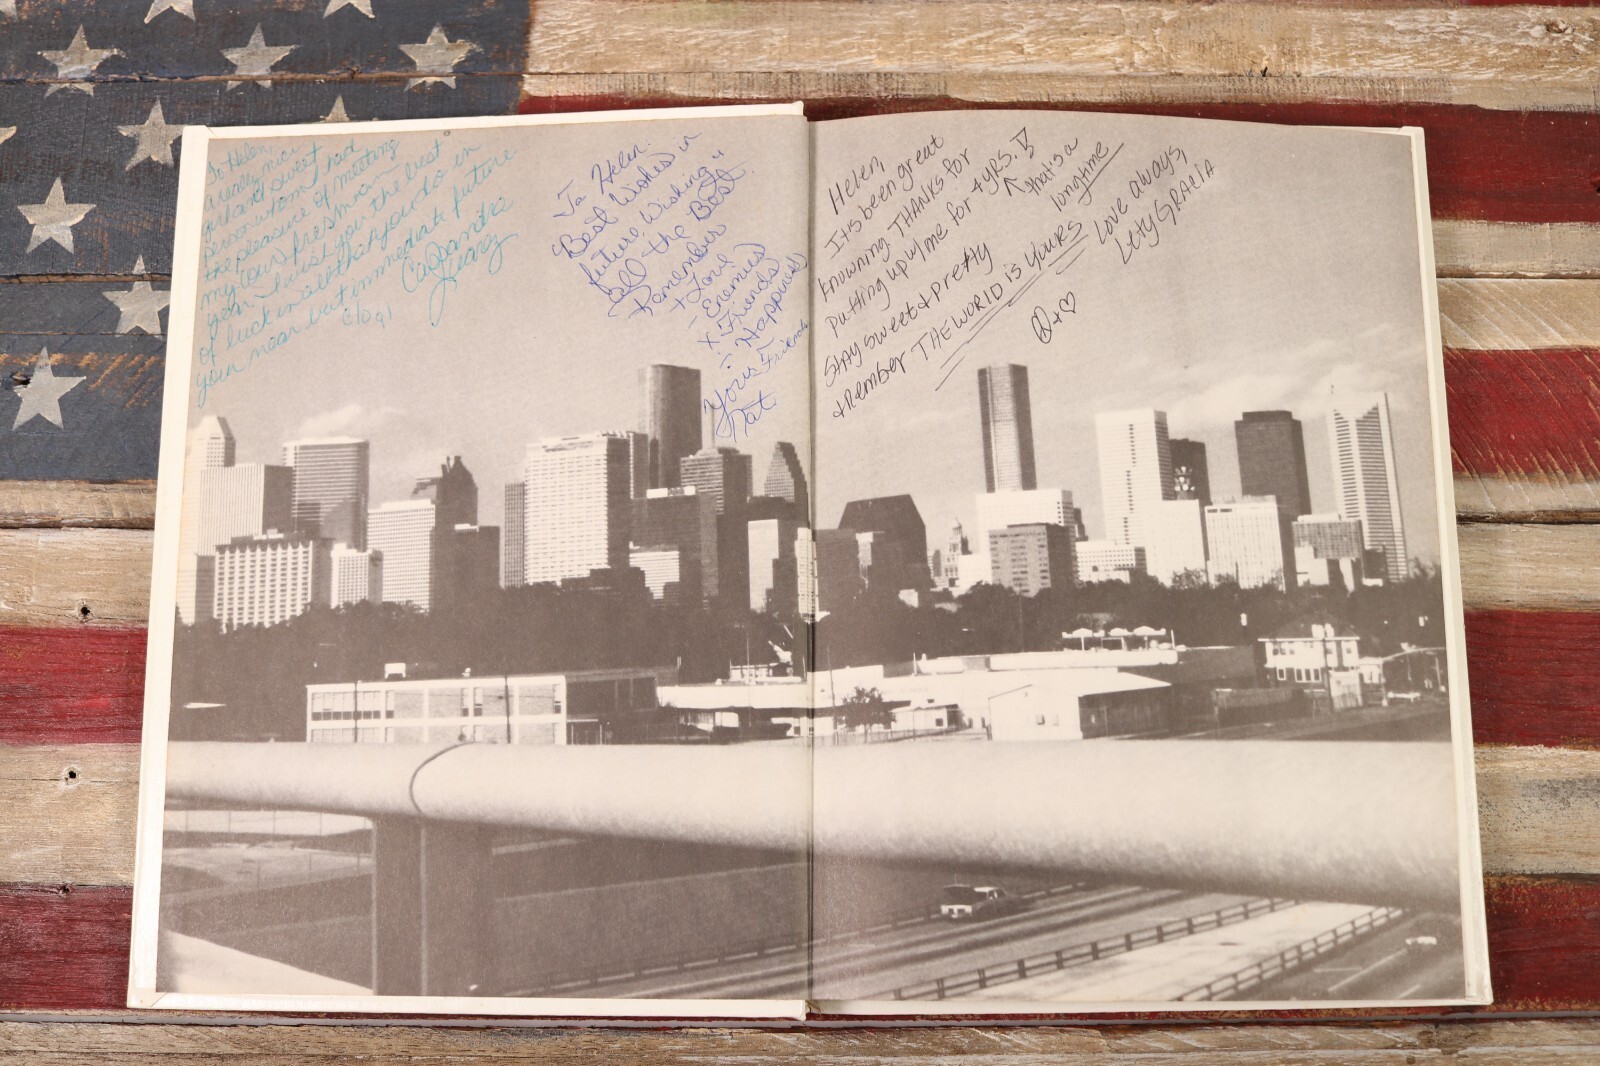 To Helen,
a really nice
girl and sweet
person whom I had
the pleasure of meeting
my last freshman
year. I wish you the best
of luck in all that you do in
your near but immediate future
c/o 91
Juarez
To Helen:
Best Wishes in
future. Wishing u
all the Best.
Remember
+ Love
- Enemies
x Friends
÷ Happiness
Yours Friends
Nat
Helen,
It's been great
knowning. THANKS for
putting up w/me for 4 YRS.!!
that is a
longtime
Stay sweet & pretty
& Rember THE WORLD is YOURS
Love always,
Lety GRACIA